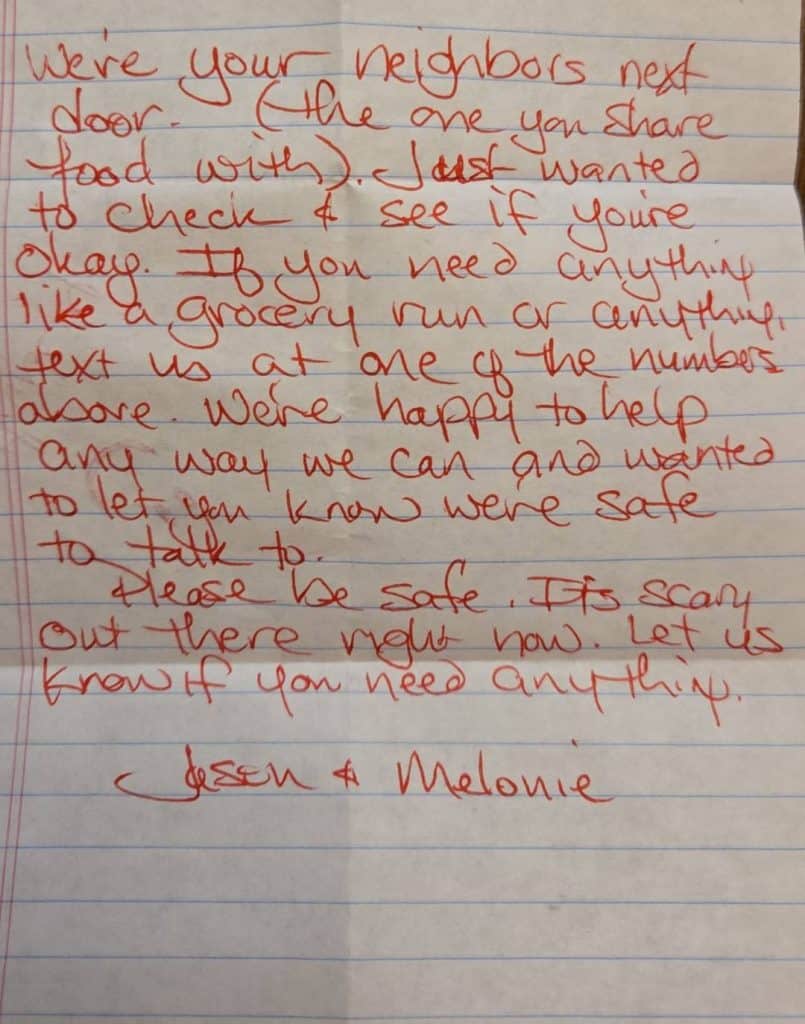 We're your neighbors next
door. (the one you share
food with). Just wanted
to check & see if you're
okay. If you need anything
like a grocery run or anything,
text us at one of the numbers
above. We're happy to help
any way we can and wanted
to let you know we're safe
to talk to.
Please be safe. It's scary
out there right now. Let us
know if you need anything.
Jason & Melonie